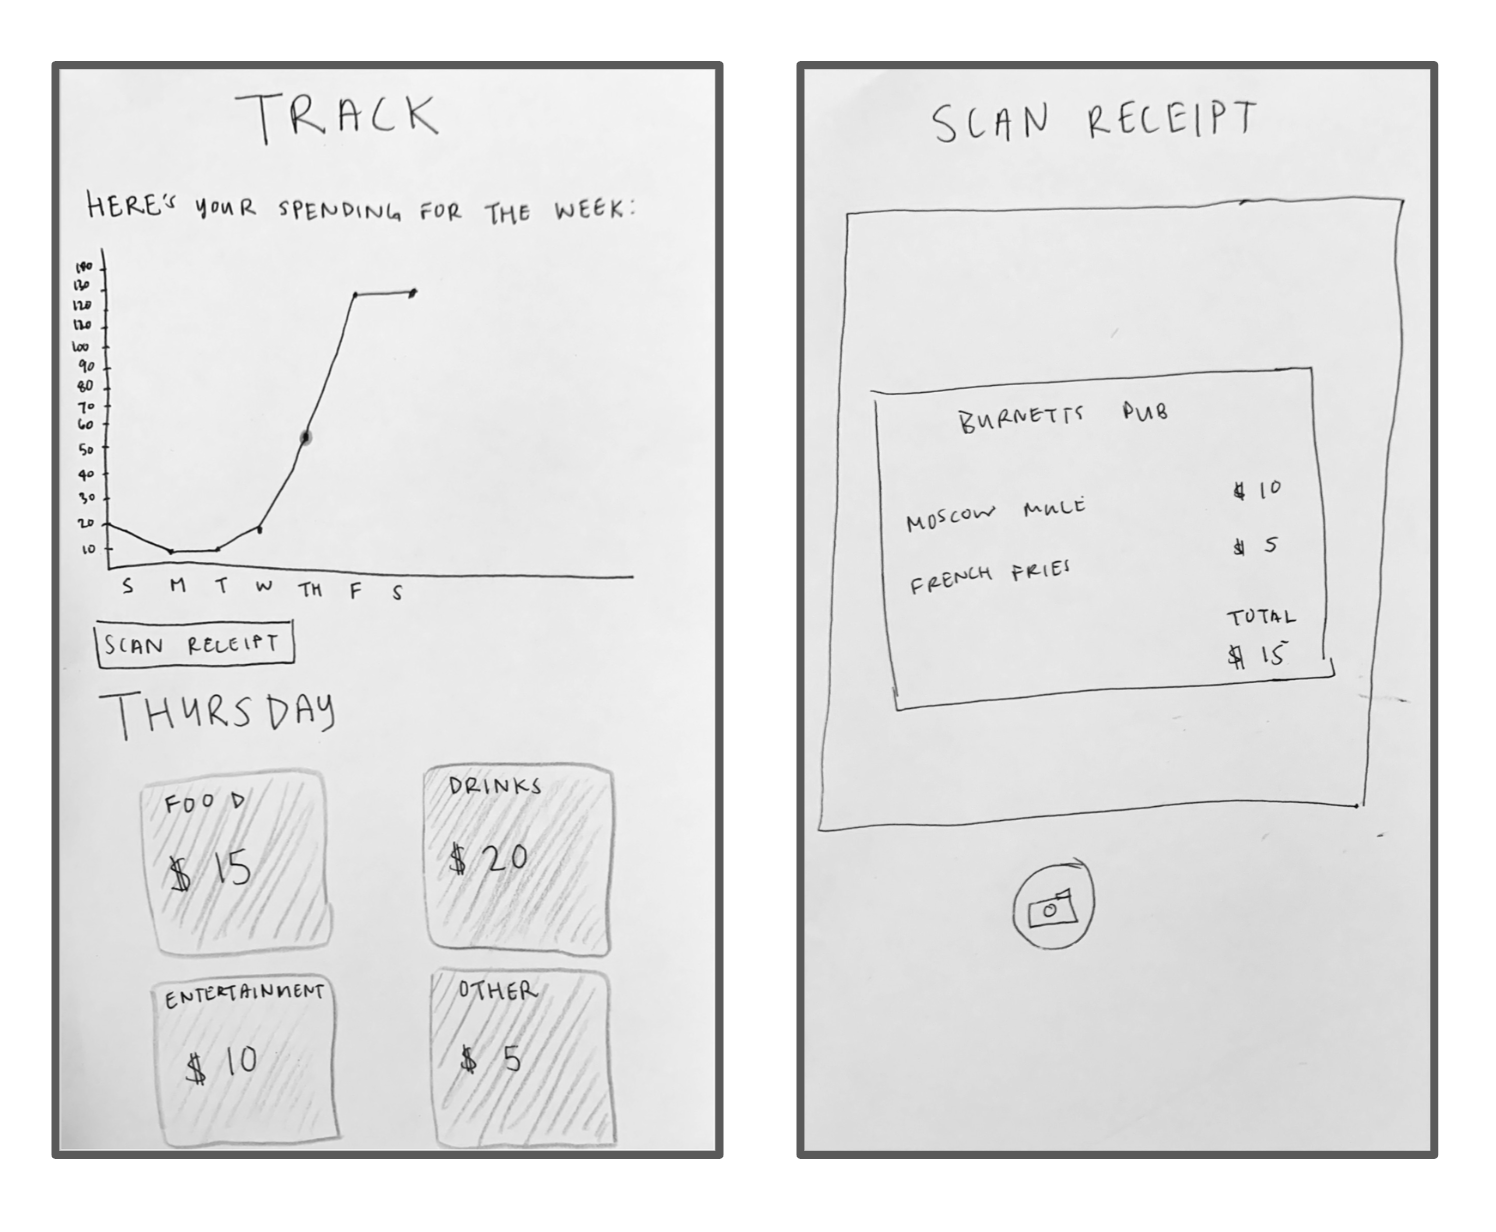 TRACK
HERE'S YOUR SPENDING FOR THE WEEK:
140
130
120
120
100
90
80
70
60
50
40
30
20
10
S M T W TH F S
SCAN RECEIPT
THURSDAY
FOOD
$ 15
DRINKS
$ 20
ENTERTAINMENT
$ 10
OTHER
$ 5
SCAN RECEIPT
BURNETTS PUB
MOSCOW MULE $ 10
FRENCH FRIES $ 5
TOTAL
$ 15